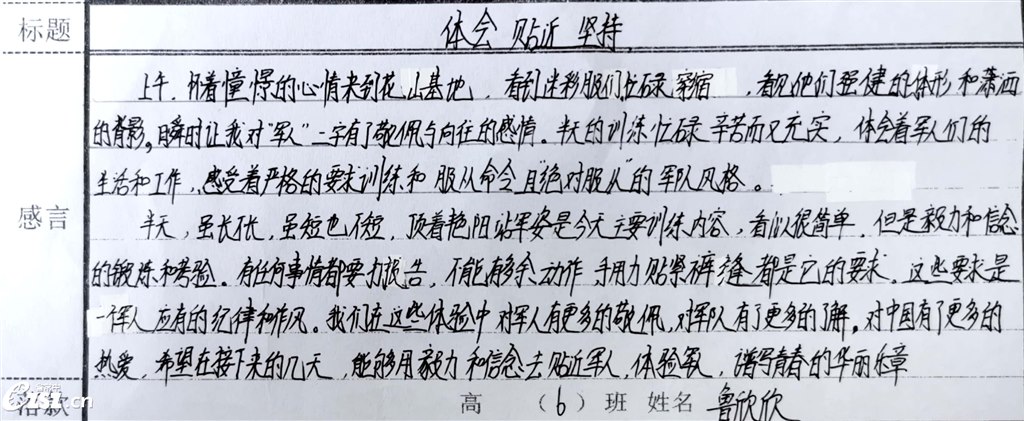 标题 体会 贴近 坚持
上午，怀着憧憬的心情来到花山基地，看到迷彩服们忙碌 看见他们强健的体形和潇洒
的背影，瞬时让我对"军人"二字有了敬佩与向往的感情。半天的训练忙碌辛苦而又充实，体会着军人们的
生活和工作，感受着严格的要求训练和服从命令且"绝对服从"的军队风格。
感言
半天，虽长不长，虽短也不短，顶着艳阳站军姿是今天主要训练内容，看似很简单，但是毅力和信念
的锻炼和考验。有任何事情都要打报告，不能有多余动作 手用力贴紧裤缝都是它的要求。这些要求是
一个军人应有的纪律和作风。我们在这些体验中对军人有更多的敬佩，对军队有了更多的了解。对中国有了更多的
热爱，希望在接下来的几天，能够用毅力和信念去贴近军人，体验军人，谱写青春的华丽乐章
落款 高 （6）班 姓名 鲁欣欣